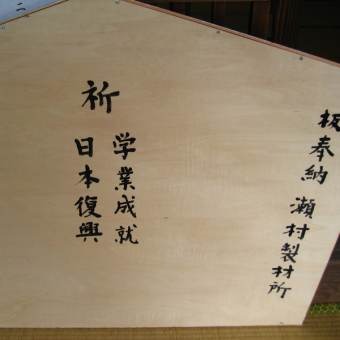 板奉納 瀬村製材所
祈
学業成就
日本復興